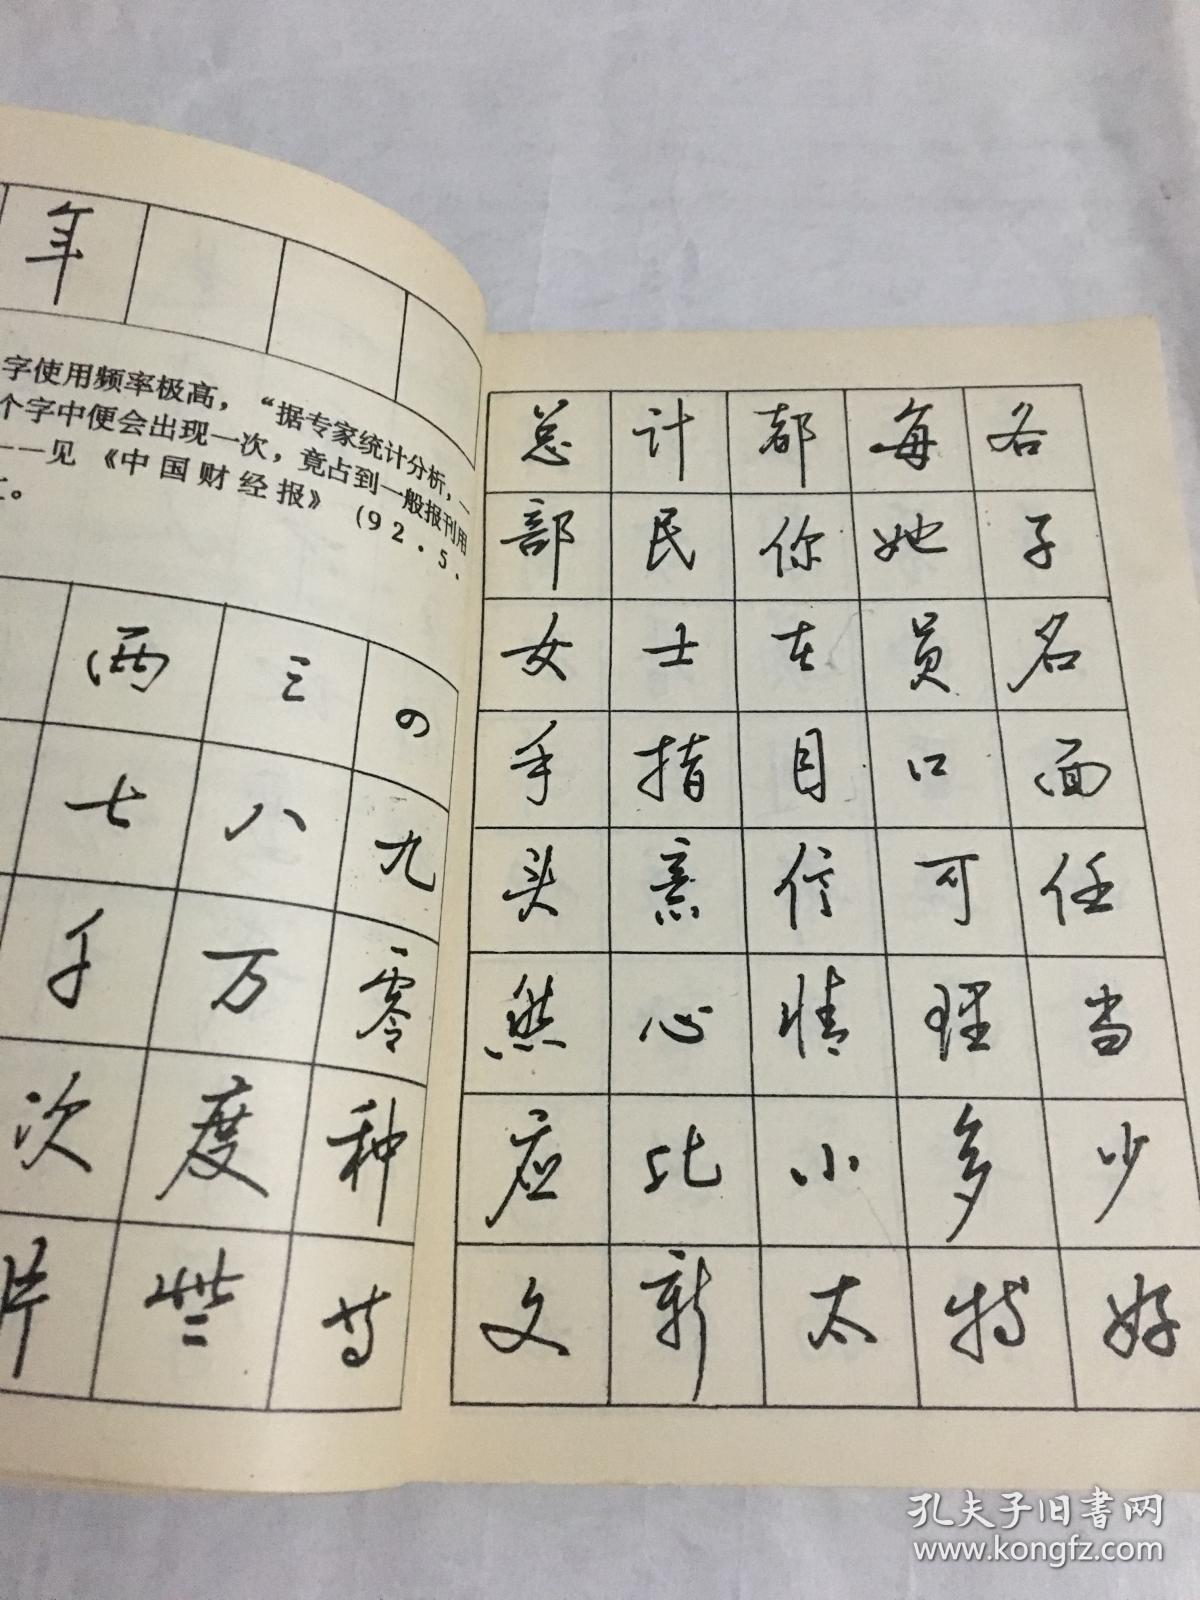 年
字使用频率极高，“据专家统计分析，一
个字中便会出现一次，竟占到一般报刊用
——见《中国财经报》（92.5.
两 三 四
七 八 九
千 万 零
次 度 种
片 些 等
总 计 都 每 各
部 民 你 她 子
女 士 在 员 名
手 指 目 口 面
头 意 信 可 任
然 心 情 理 当
应 比 小 多 少
文 新 太 特 好
孔夫子旧书网
www.kongfz.com